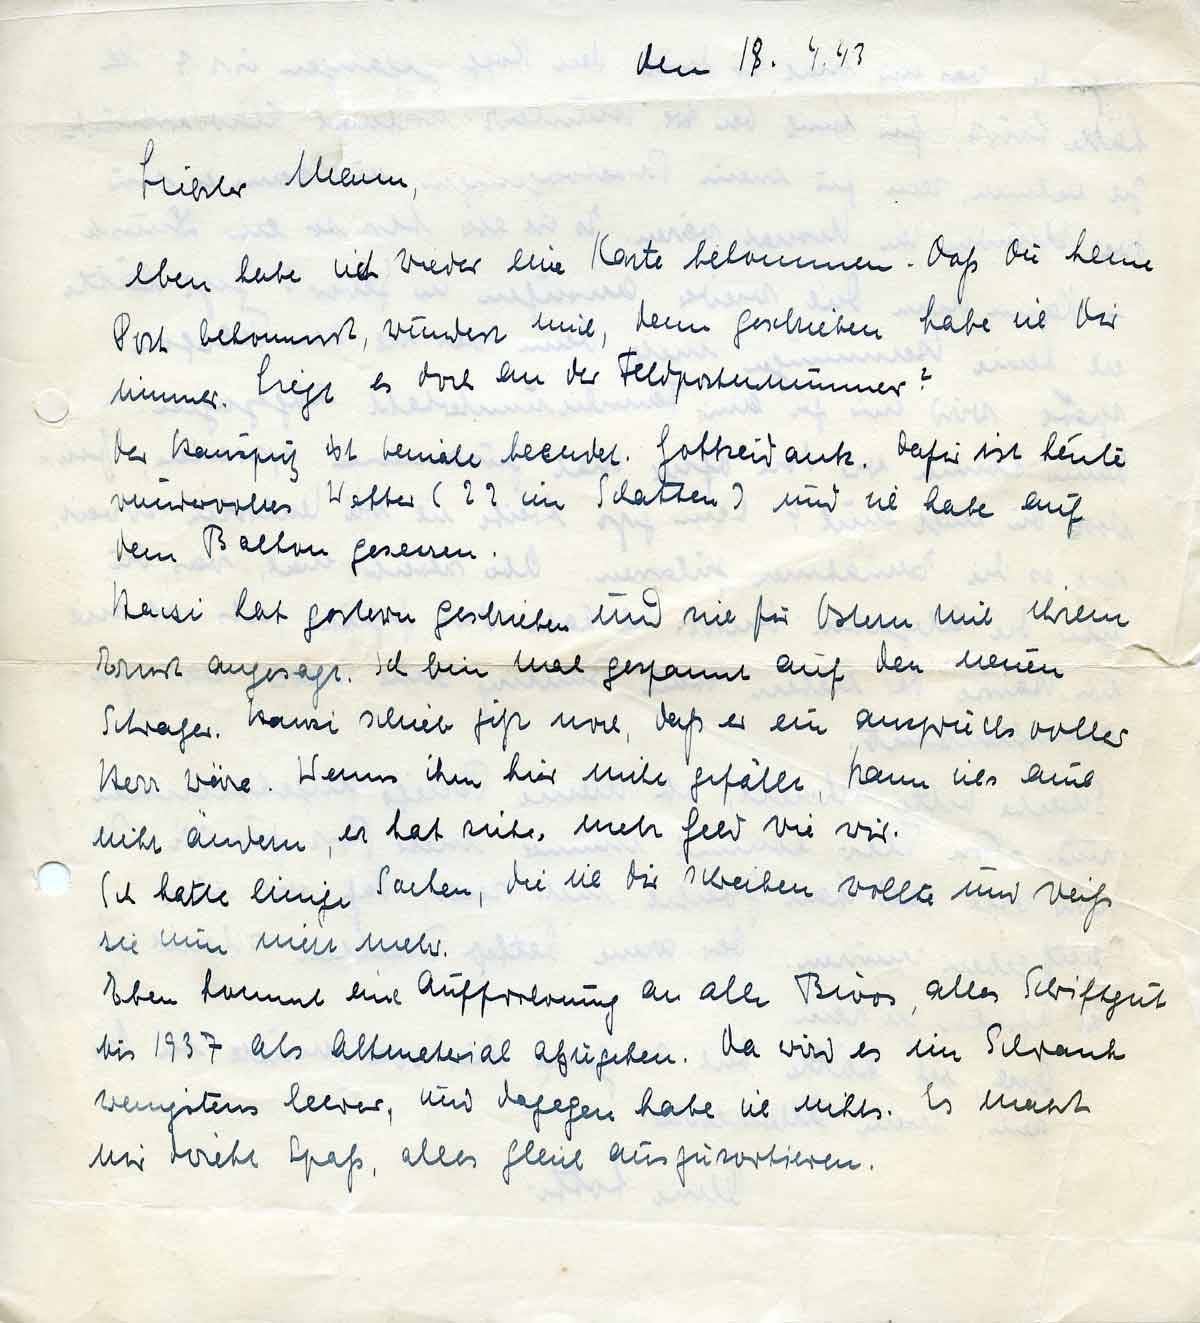 den 18. 4.43
Liebster Mann,
eben habe ich wieder eine Karte bekommen. Daß Du keine
Post bekommst, wundert mich, denn geschrieben habe ich Dir
immer. Liegt es doch an der Feldpostnummer?
Der Hausputz ist beinahe beendet. Gottseidank. Dafür ist heute
wundervolles Wetter (22 im Schatten) und ich habe auf
dem Balkon gesessen.
Hansi hat gestern geschrieben und sie für Ostern mit ihrem
Ernst angesagt. Ich bin mal gespannt auf den neuen
Schwager. Hansi schrieb jetzt noch, daß er ein anspruchsvoller
Herr wäre. Wenns ihm hier nicht gefällt, kann ichs auch
nicht ändern, er hat sicher mehr Geld wie wir.
Ich hatte einige Sachen, die ich Dir schreiben wollte und weiß
sie nun nicht mehr.
Eben kommt eine Aufforderung an alle Büros, alles Schriftgut
bis 1937 als Altmaterial abzugeben. Da wird es im Schrank
wenigstens leerer, und dagegen habe ich nichts. Es macht
mir direkt Spaß, alles gleich auszusortieren.